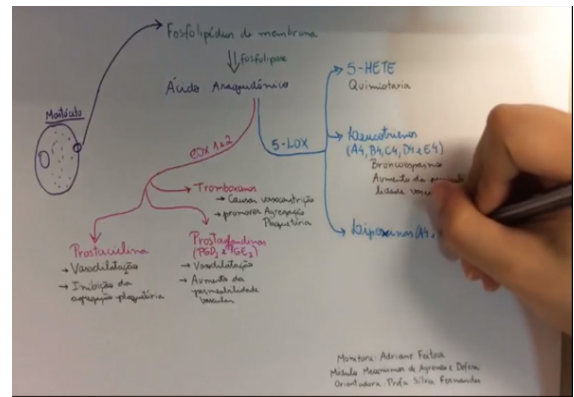 Fosfolipídios de membrana
fosfolipase
Ácido Araquidônico
Mastócito
COX 1 e 2
5-LOX
5-HETE
Quimiotaxia
Leucotrienos
(A4, B4, C4, D4 e E4)
Broncoespasmo
Aumento da
lidade
Lipoxinas (A4
Tromboxano
→ Causa vasoconstrição
→ promove Agregação
Plaquetária
Prostaciclina
→ Vasodilatação
→ Inibição da
agregação plaquetária
Prostaglandinas
(PGD2 e PGE2)
→ Vasodilatação
→ Aumento da
permeabilidade
vascular
Monitora: Adriane Feitosa
Módulo Mecanismos de Agressão e Defesa
Orientadora Profa Silvia Fernandes